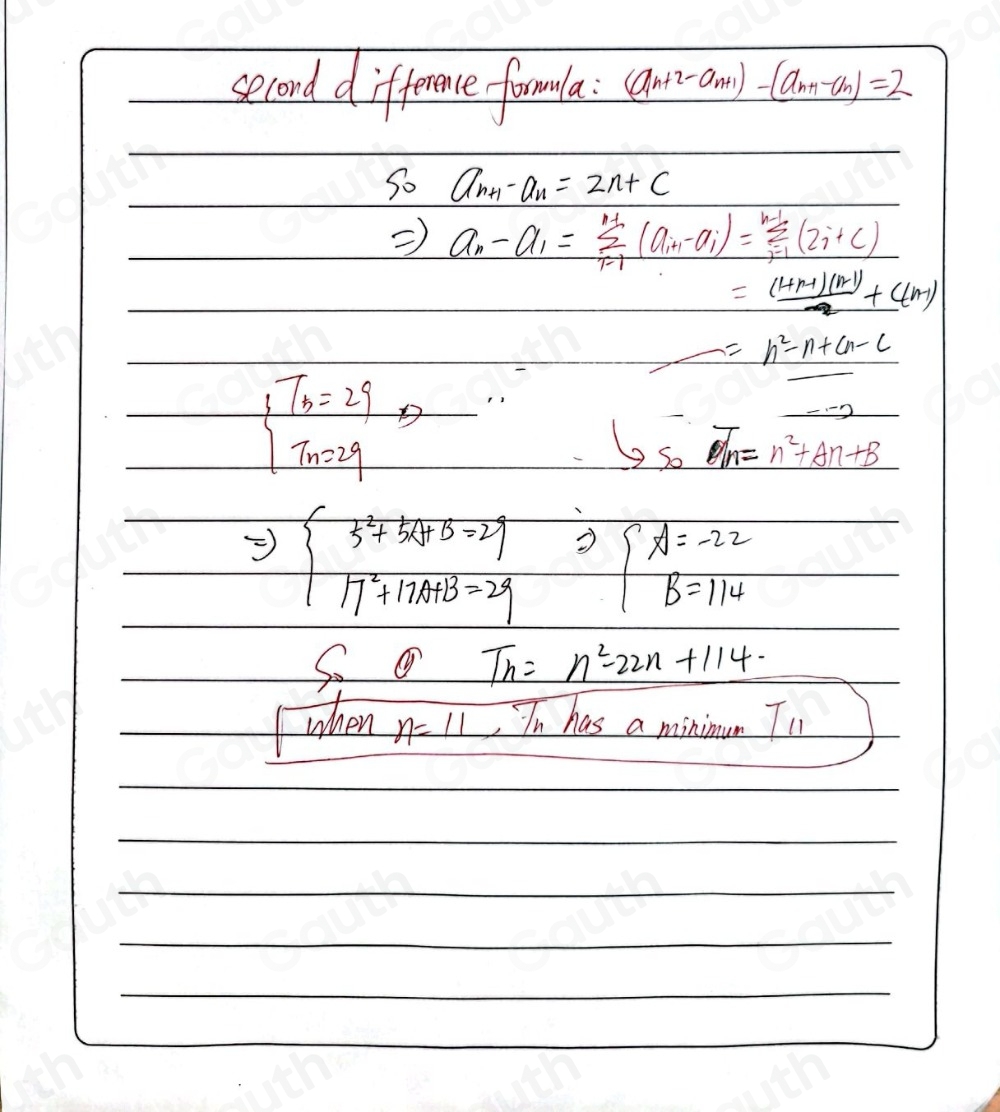 second difference formula: (an+2-an+1)-(an+1-an)=2
So an+1-an=2n+C
=> an-a1= n-1 Σ i=1 (ai+1-ai)= n-1 Σ i=1 (2i+C)
= (1+n-1)(n-1) + C(n-1)
= n²-n+Cn-C
{ T5=29 =>
Tn=29
↳ So Tn= n²+An+B
=> { 5²+5A+B=29 => { A=-22
17²+17A+B=29 B=114
So Tn= n²-22n+114.
when n=11, Tn has a minimum T11
Gauth